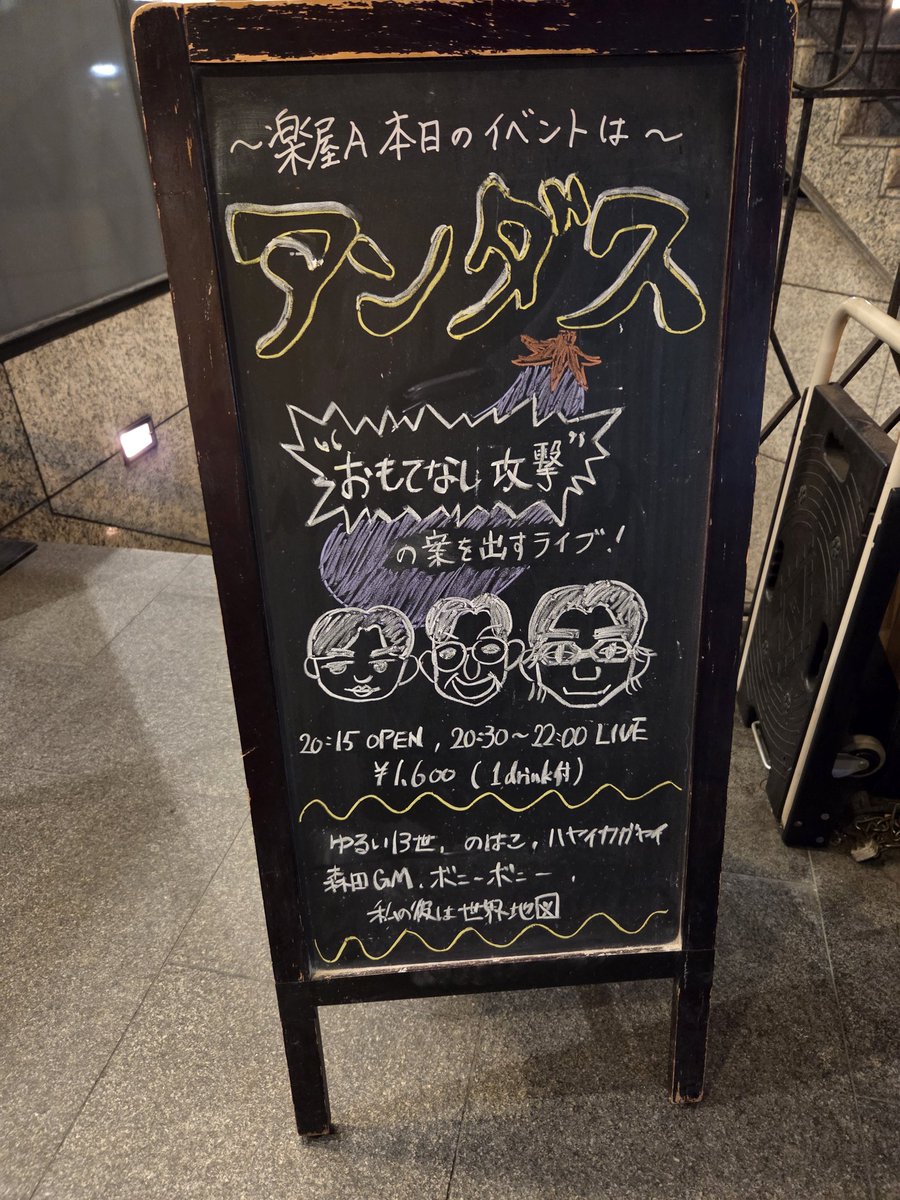 ～楽屋A 本日のイベントは～
アンダス
"おもてなし攻撃"
の案を出すライブ!
20:15 OPEN, 20:30～22:00 LIVE
¥1,600 (1drink付)
ゆるい13世, のはこ, ハヤイカガヤイ
森田GM, ボニーボニー,
私の彼は世界地図